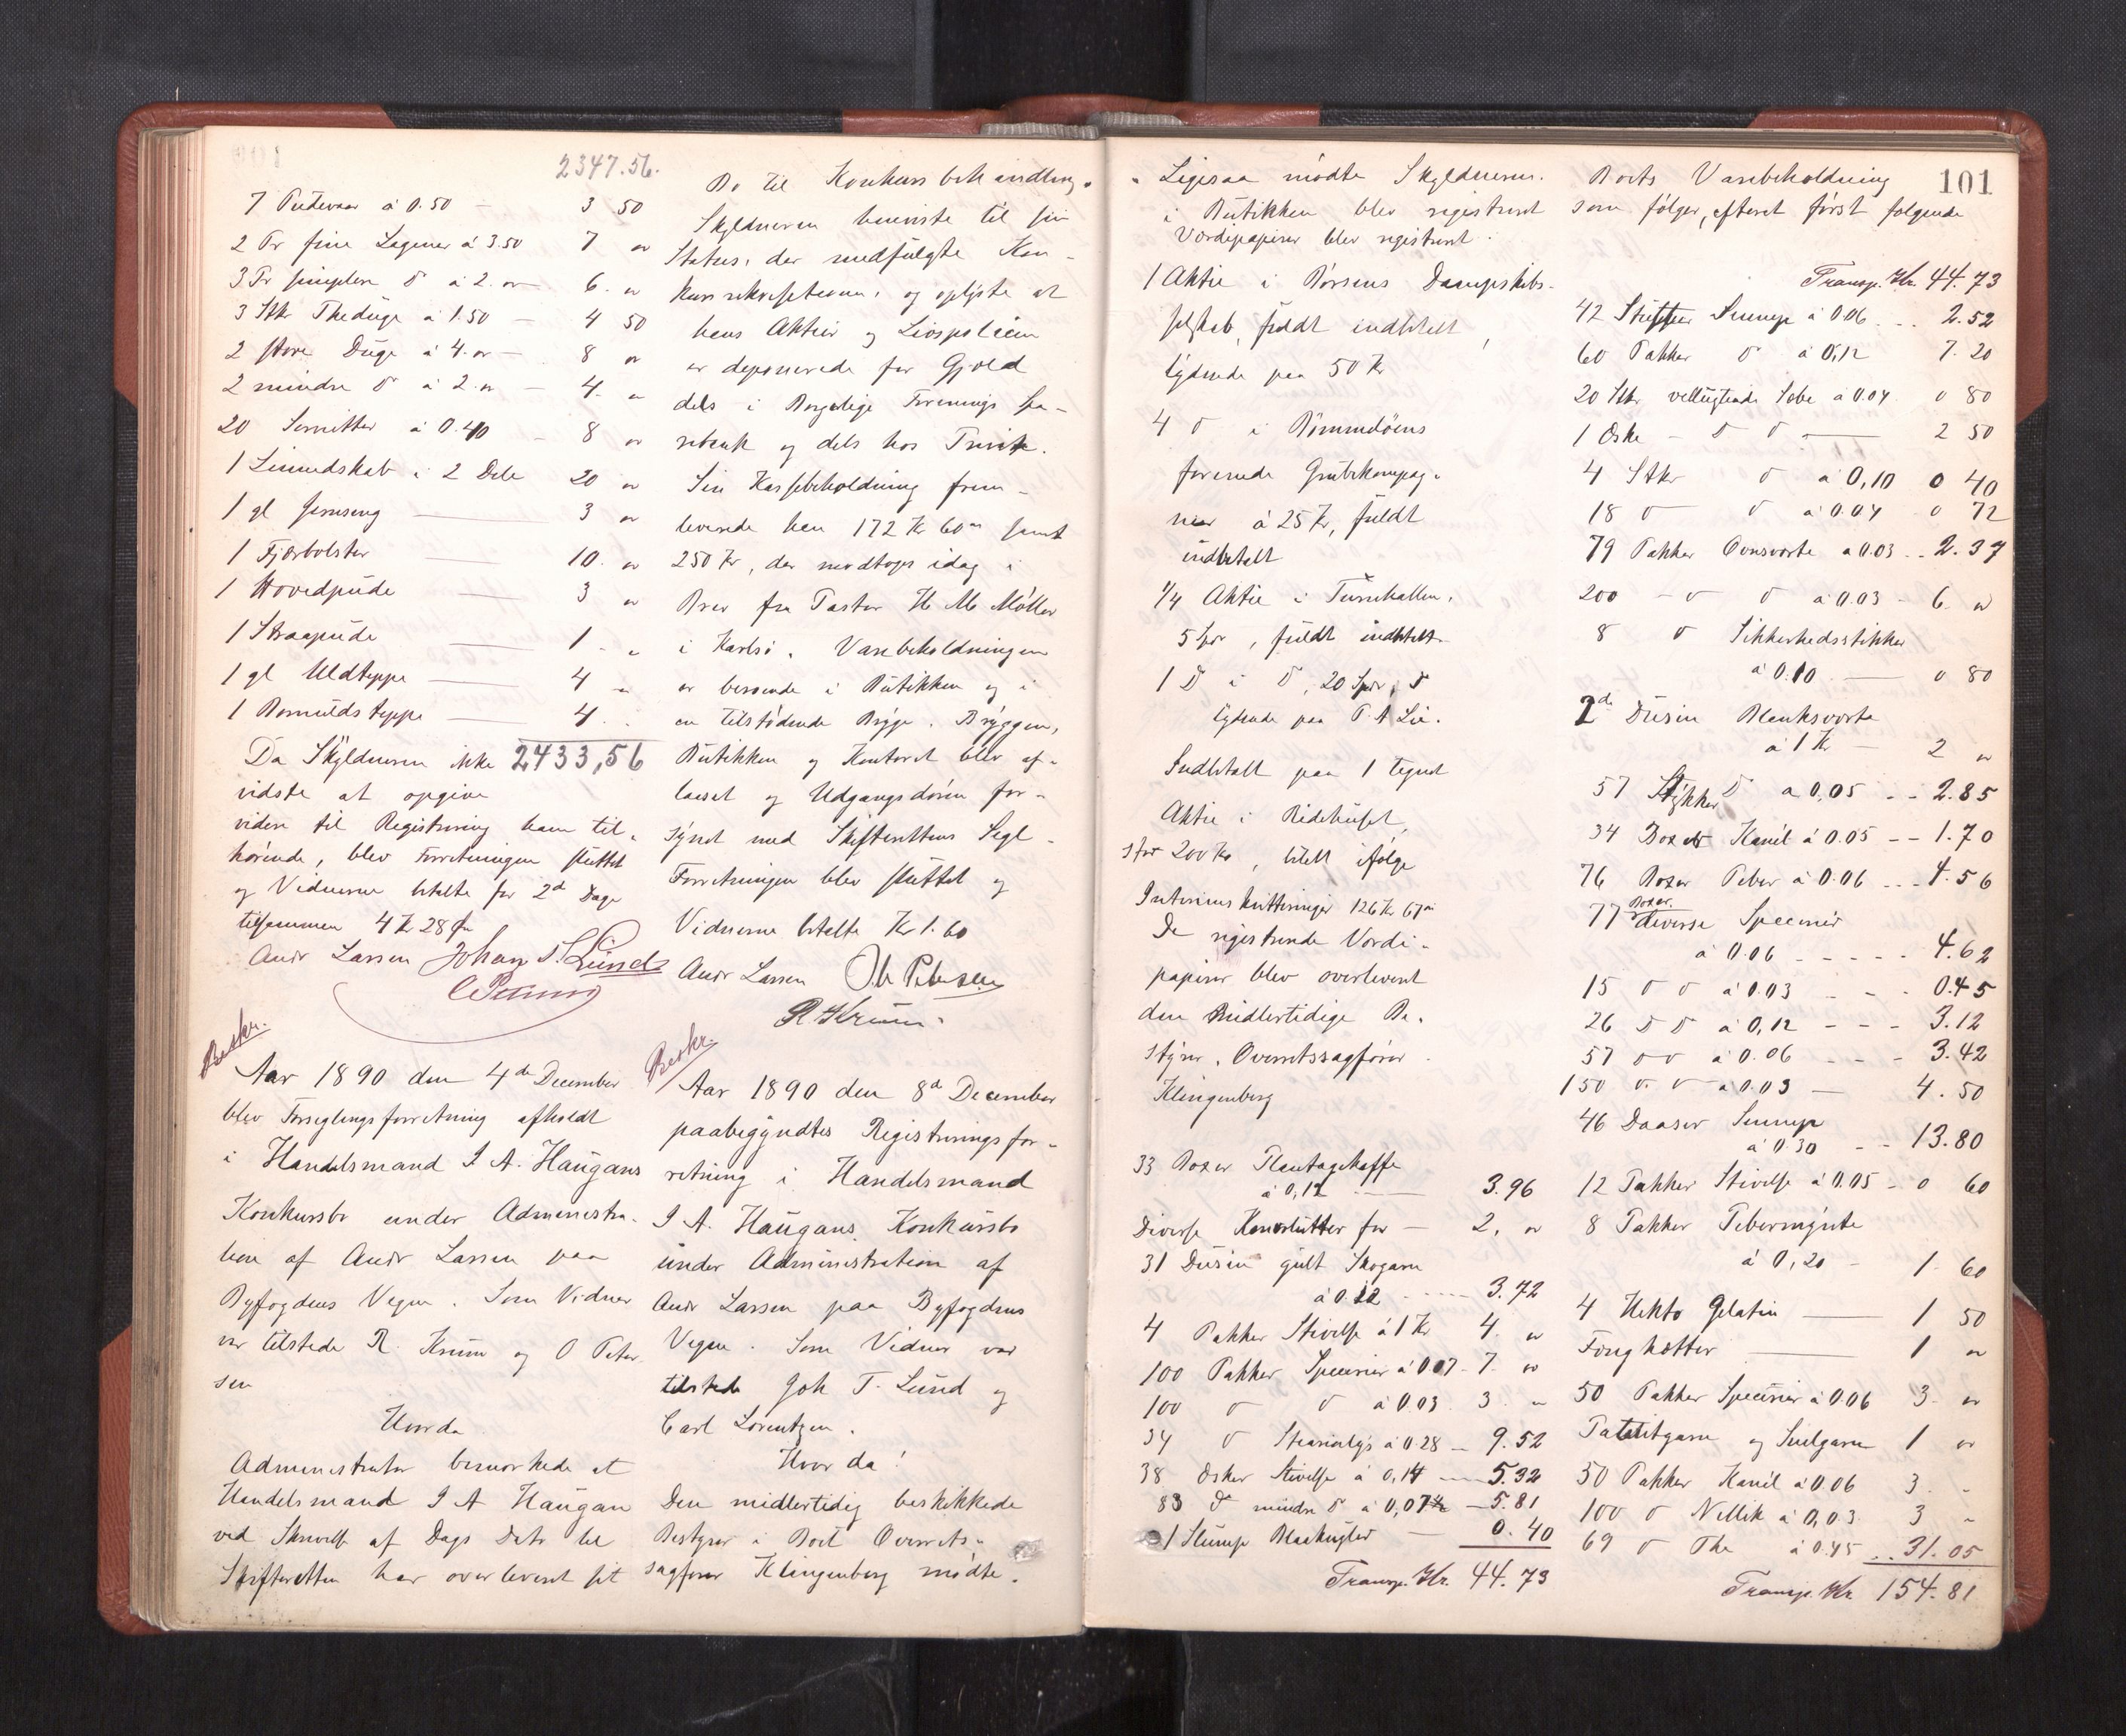 2347.56.
7 Pudevaar á 0.50 - 3 50
2 Pr fine Lagener á 3.50 7 "
3 Pr simplere d á 2. " - 6. "
3 Stkr Theduge á 1.50 - 4 50
2 store Duge á 4. " - 8 "
2 mindre d á 2 " - 4. "
20 Servietter á 0.40 - 8 "
1 Linnedskab i 2 Dele 20 "
1 gl Jernseng 3 "
1 Fjærbolster 10. "
1 Hovedpude 3 "
1 Straapude 1 - "
1 gl Uldteppe 4 - "
1 Bomulds teppe 4. "
2433,56
Da Skyldneren ikke
vidste at opgive
videre til Registrering ham til-
hørende, blev Forretningen sluttet
og Vidnerne betalte for 2de Dage
tilsammen 4 Kr 28 Øre
Andr Larsen Johan S. Lund
Beskr.
Aar 1890 den 4de December
blev Forseglingsforretning afholdt
i Handelsmand I A. Haugans
Konkursbo under Administra-
tion af Andr Larsen paa
Byfogdens Vegne. Som Vidner
var tilstede R. Krum og O Peter-
sen
Hvorda
Administrator bemærkede at
Handelsmand I A Haugan
ved Skrivelse af Dags Dato til
Skifteretten har overleveret sit
Bo til Konkursbehandling.
Skyldneren henviste til sin
Status, der medfulgte Kon-
kursrekvisitionen, og oplyste at
hans Aktier og Livspolicen
er deponerede for Gjæld
dels i Borgerlige Forenings Spa-
rebank og dels hos Private.
Sin Kassebeholdning frem-
leverede han 172 Kr 60 Øre samt
250 Kr, der modtoges idag i
Brev fra Pastor H. M. Møller
i Karlsø. Varebeholdningen
er beroende i Butikken og i
en tilstødende Brygge. Bryggen,
Butikken og Kontoret blev af-
laaset og Udgangsdøren for-
synet med Skifterettens Segl -
Forretningen blev sluttet og
Vidnerne betalte Kr 1.60
Andr Larsen Ole Petersen
R Krum.
Beskr.
Aar 1890 den 8de December
paabegyndtes Registreringsfor-
retning i Handelsmand
I A. Haugans Konkursbo
under Administration af
Andr Larsen paa Byfogdens
Vegne. Som Vidner var
tilstede Joh T. Lund og
Carl Lorentzen.
Hvor da!
Den midlertidig beskikkede
Bestyrer i Boet Overrets-
sagfører Klingenberg mødte.
101
Ligesaa mødte Skyldneren.
i Butikken blev registreret
Værdipapirer blev registreret.
1 Aktie i Børsens Dampskibs-
selskab, fuldt indbetalt,
lydende paa 50 Kr
4 d i
forenede Grubekompag-
nier á 25 Kr, fuldt
indbetalt
1/4 Aktie i Turnhallen,
5 Spdr, fuldt indbetalt -
1 d i d, 20 Spdr, d
lydende paa P. A Lie.
Indbetalt paa 1 tegnet
Aktie i Ridehuset,
stor 200 Kr, betalt ifølge
Interimskvitteringer 126 Kr 67 Øre
De registrerede Værdi-
papirer blev overleveret
den midlertidige Be-
styrer, Overretssagfører
Klingenberg
33 Boxer Plantagekaffe
á 0,12 3.96
Diverse for - 2. "
31 Dusin gult Skogarn
á 0.12 3.72
4 Pakker Stivelse á 1 Kr 4. "
100 Pakker Specerier á 0.07 - 7. "
100 d d á 0.03 3. "
34 d Stearinlys á 0.28 - 9.52
38 Æsker Stivelse á 0,14 5.32
83 d mindre d á 0,07 - 5.81
1 Slump Blaakugler 0.40
Transp. Kr. 44.73
Boets Varebeholdning
som følger, efterat først følgende
Transp. Kr. 44.73
42 Stykker Sennep á 0.06 2.52
60 Pakker d á 0,12 7.20
20 Stkr vellugtende Sæbe á 0.04 0 80
1 Æske - d d 2 50
4 Stkr d á 0,10 0 40
18 d d á 0.04 0 72
79 Pakker Ovnsværte á 0.03 2.37
200 - d d á 0.03 - 6. "
8 d Sikkerhedsstikker
á 0.10 0 80
2de Dusin Blanksværte
á 1 Kr - 2 "
57 Stykker d á 0,05 - - 2.85
34 Boxer Kanel á 0.05 - - 1.70
76 Boxer Peber á 0.06 - - - 4.56
77 Boxer diverse Specerier
á 0.06 - - - - - 4.62
15 d d á 0.03 - - - 0.45
26 d d á 0,12 - - - 3.12
57 d d á 0.06 - - - 3.42
150 d d á 0.03 - 4.50
46 Daaser Sennep
á 0.30 - - 13.80
12 Pakker Stivelse á 0.05 - 0 60
8 Pakker Pebermynte
á 0,20 - 1. 60
4 Hekto Gelatin 1 50
Fænghætter 1 "
50 Pakker Specerier á 0.06 3. "
Patentgarn og Seilgarn 1 "
50 Pakker Kanel á 0.06 3. -
100 d Nellik á 0,03. 3 -
69 d The á 0.45 31.05
Transp. Kr 154.81